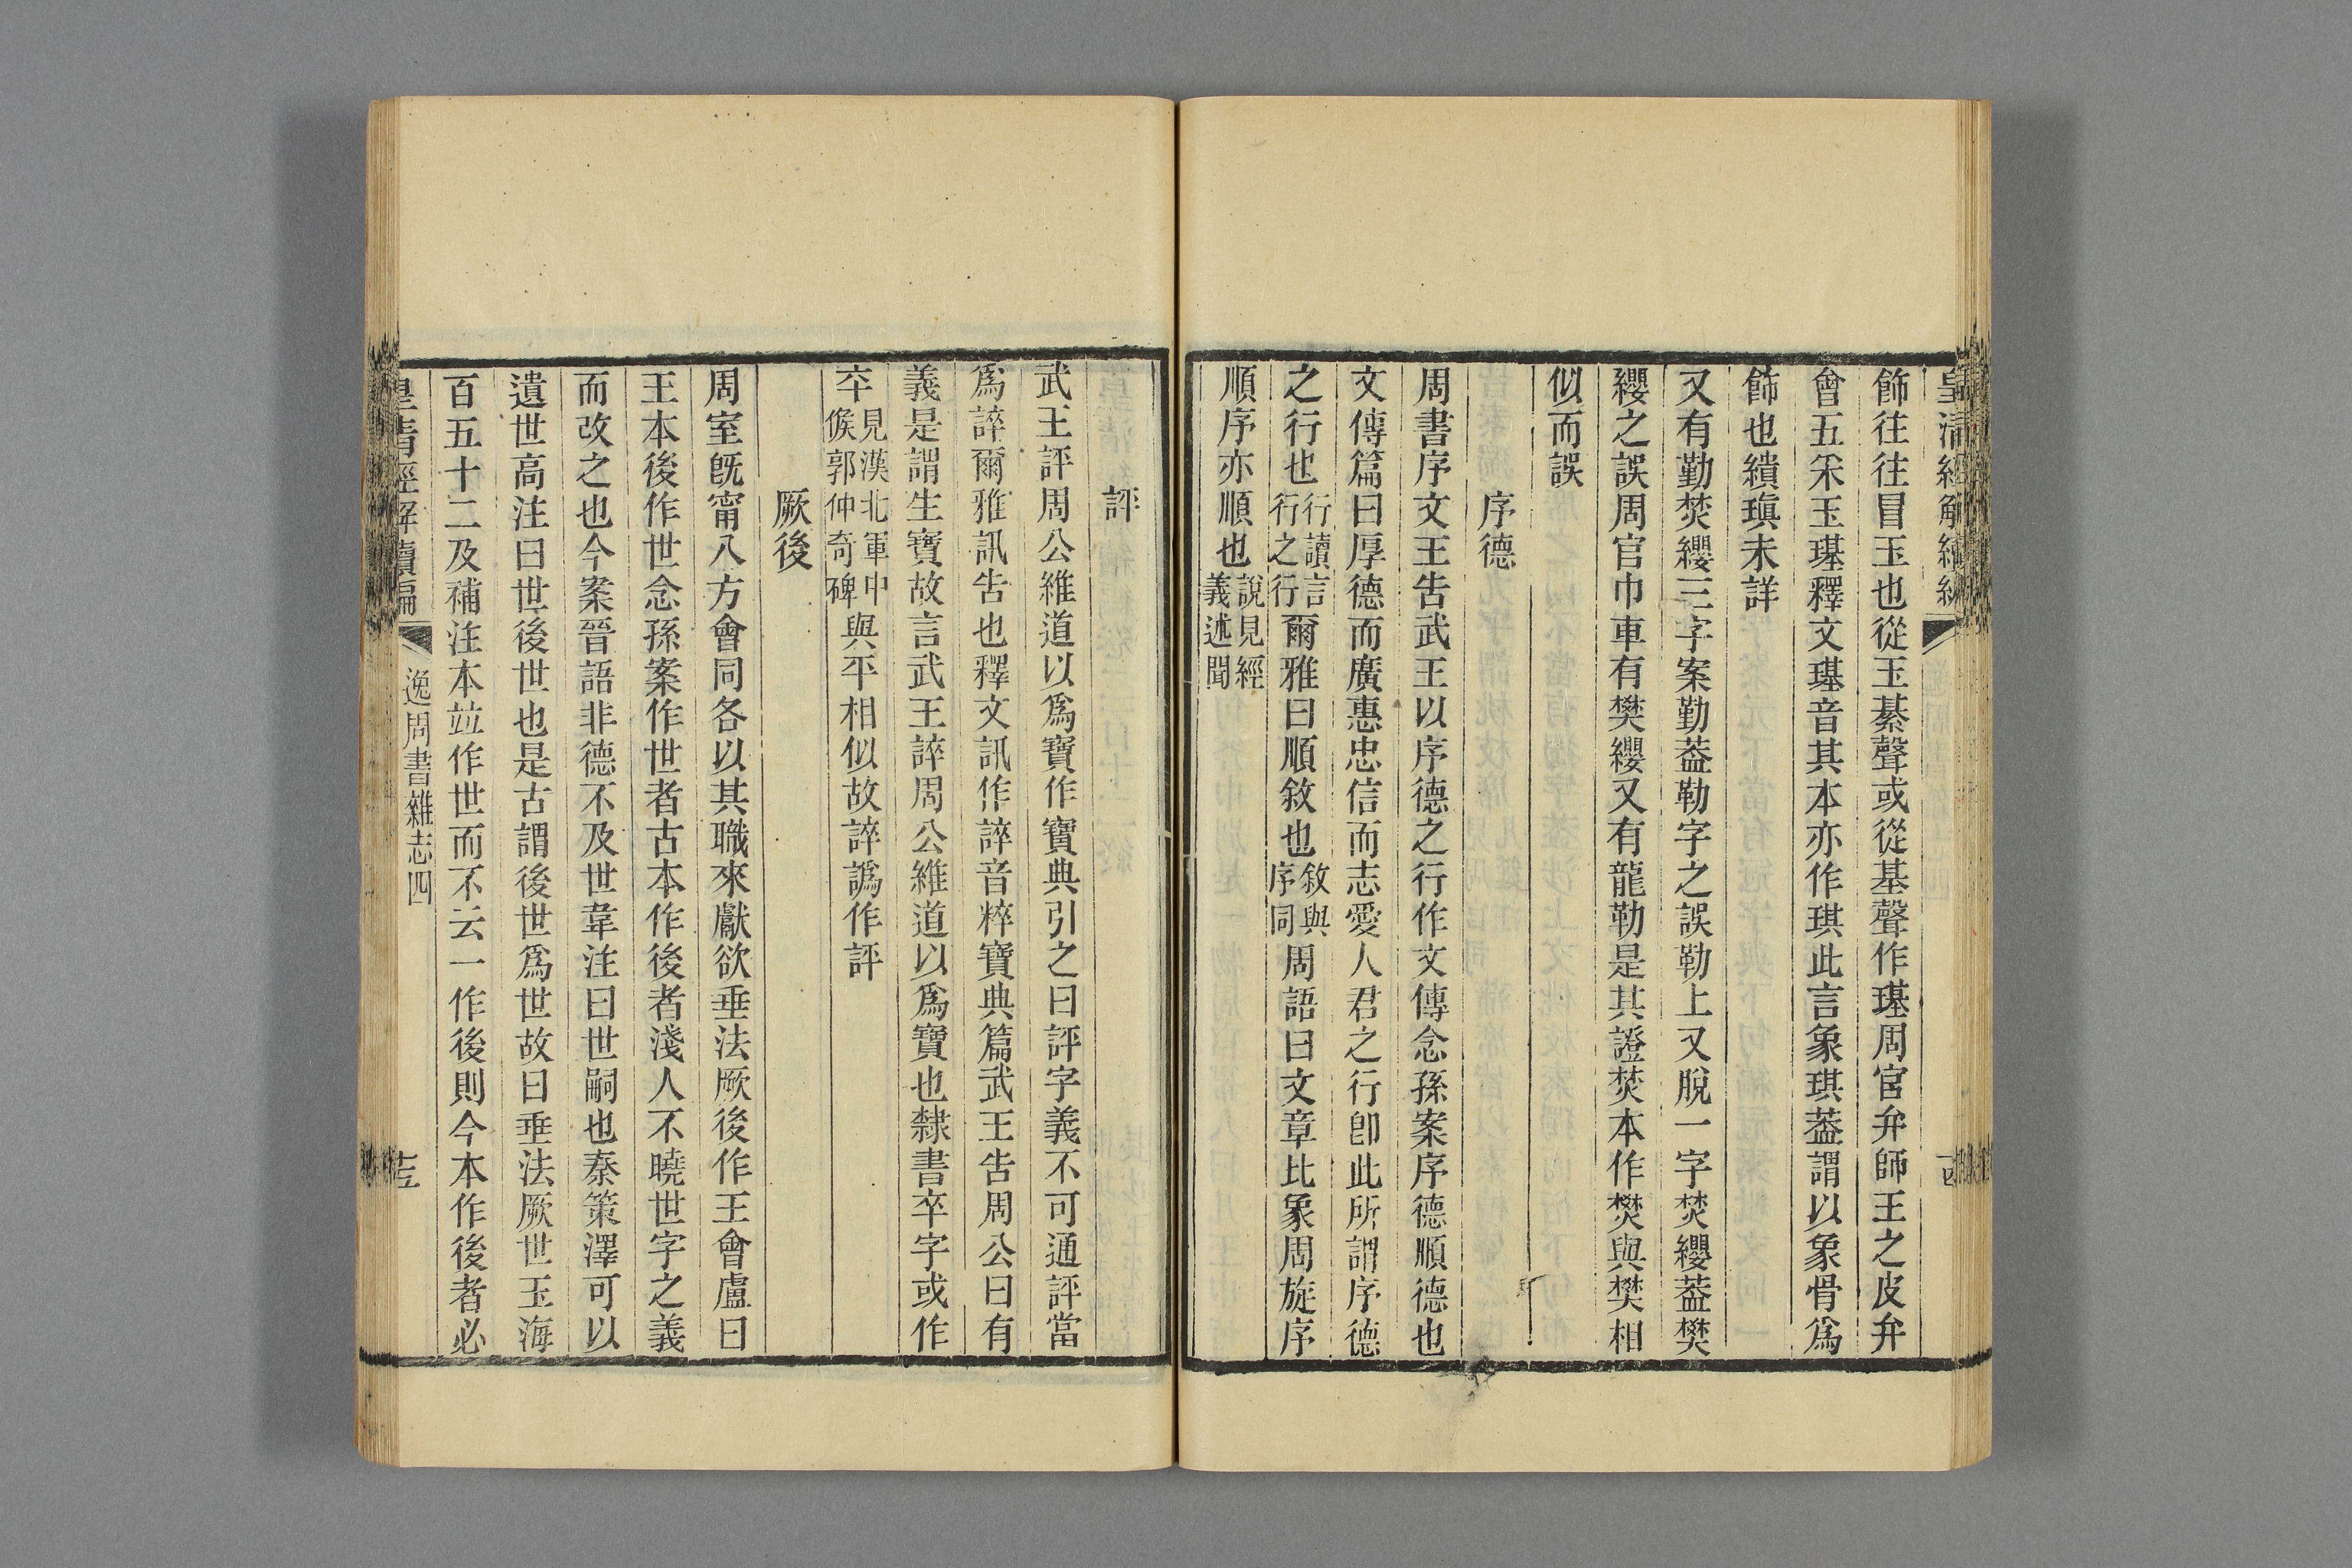 飾往往冒玉也從玉綦聲或從基聲作璂周官弁師王之皮弁
會五采玉璂釋文璂音其本亦作琪此言象琪葢謂以象骨爲
飾也繢瑱未詳
又有勤焚纓三字案勤葢勒字之誤勒上又脫一字焚纓葢樊
纓之誤周官巾車有樊纓又有龍勒是其證焚本作㷊與樊相
似而誤
序德
周書序文王告武王以序德之行作文傳念孫案序德順德也
文傳篇曰厚德而廣惠忠信而志愛人君之行卽此所謂序德
之行也行讀言行之行爾雅曰順敘也敘與序同周語曰文章比象周旋序
順序亦順也說見經義述聞
評
武王評周公維道以爲寶作寶典引之曰評字義不可通評當
爲誶爾雅訊告也釋文訊作誶音粹寶典篇武王告周公曰有
義是謂生寶故言武王誶周公維道以爲寶也隸書卒字或作
卆見漢北軍中候郭仲奇碑與平相似故誶譌作評
厥後
周室旣甯八方會同各以其職來獻欲垂法厥後作王會盧曰
王本後作世念孫案作世者古本作後者淺人不曉世字之義
而改之也今案晉語非德不及世韋注曰世嗣也秦策澤可以
遺世高注曰世後世也是古謂後世爲世故曰垂法厥世玉海
百五十二及補注本竝作世而不云一作後則今本作後者必
皇清經解續編 逸周書雜志四